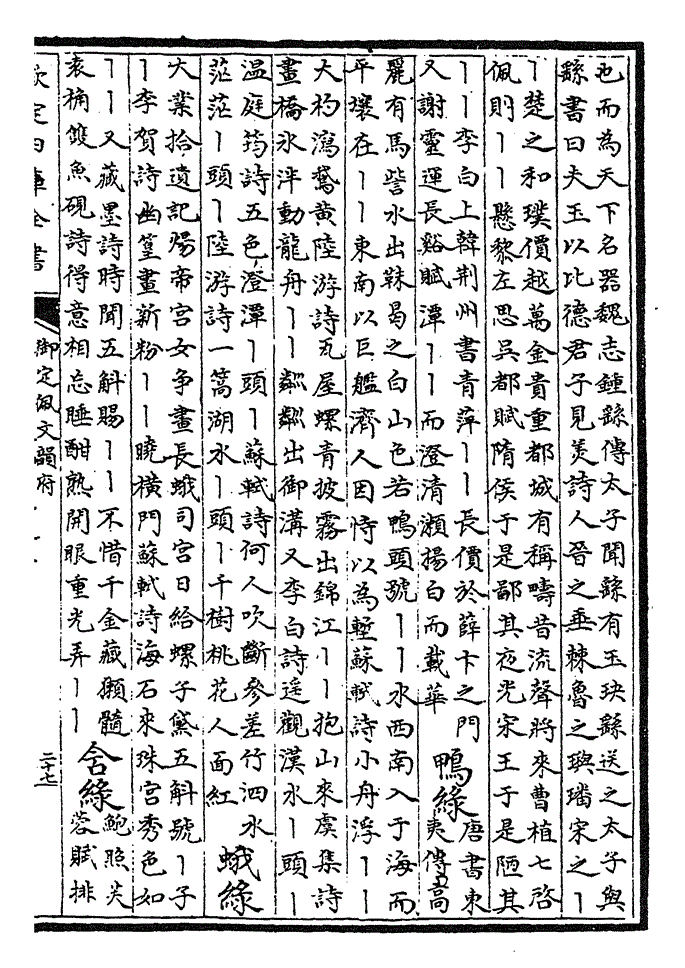 也而為天下名器魏志鍾繇傳太子聞繇有玉玦繇送之太子與
繇書曰夫玉以比德君子見羙詩人晉之垂棘魯之璵璠宋之丨
丨楚之和璞價越萬金貴重都城有稱疇昔流聲將來曹植七啓
佩則丨丨懸黎左思吳都賦隋侯于是鄙其夜光宋王于是陋其
丨丨李白上韓荆州書青萍丨丨長價於薛卞之門
又謝靈運長谿賦潭丨丨而澄清瀬揚白而載華
鴨緑
唐書東
夷傳高
麗有馬訾水出靺曷之白山色若鴨頭號丨丨水西南入于海而
平壤在丨丨東南以巨艦濟人因恃以為塹蘇軾詩小舟浮丨丨
大杓瀉鵝黃陸游詩瓦屋螺青披霧出錦江丨丨抱山來虞集詩
畫橋氷泮動龍舟丨丨粼粼出御溝又李白詩遙觀漢水丨頭丨
温庭筠詩五色澄潭丨頭丨蘇軾詩何人吹斷參差竹泗水
茫茫丨頭丨陸游詩一篙湖水丨頭丨千樹桃花人面紅
蛾緑
大業拾遺記煬帝宮女争畫長蛾司宮日給螺子黛五斛號丨子
丨李賀詩幽篁畫新粉丨丨曉橫門蘇軾詩海石來珠宮秀色如
丨丨又藏墨詩時聞五斛賜丨丨不惜千金藏獺髓
袁桷雙魚硯詩得意相忘睡酣熟開眼重光弄丨丨
含緑
鮑照芙
蓉賦排
欽定四庫全書
御定佩文韻府
二十七